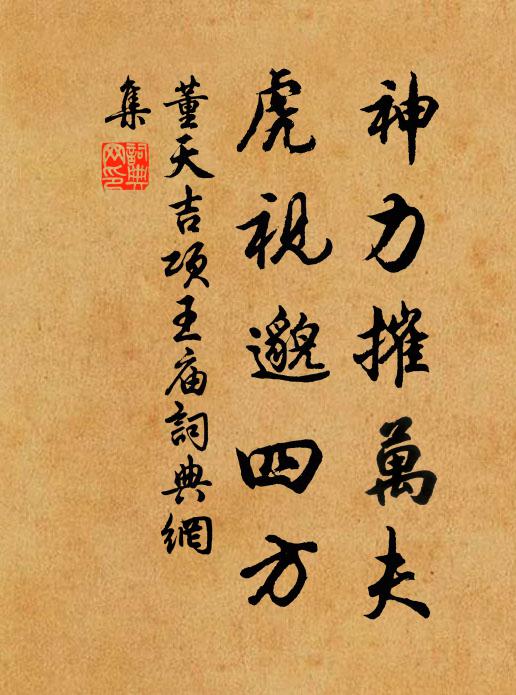 神力摧萬夫
虎視邈四方
董天吉項王庙詞典網
集
詞典
网印